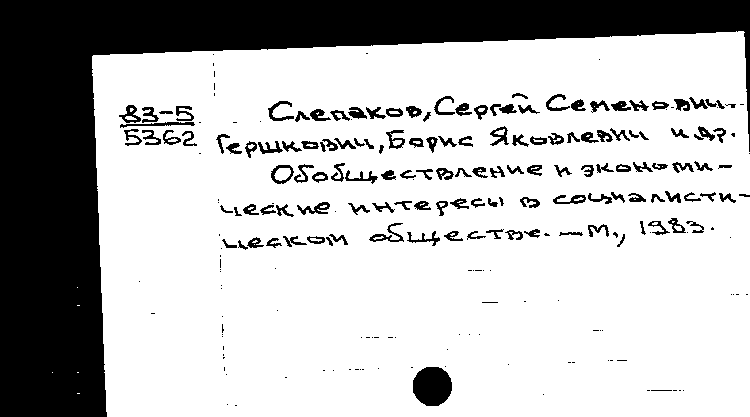 83-5
5362
Слепаков, Сергей Семенович.
Гершкович, Борис Яковлевич и др.
Обобществление и экономи-
ческие интересы в социалисти-
ческом обществе. — М., 1983.